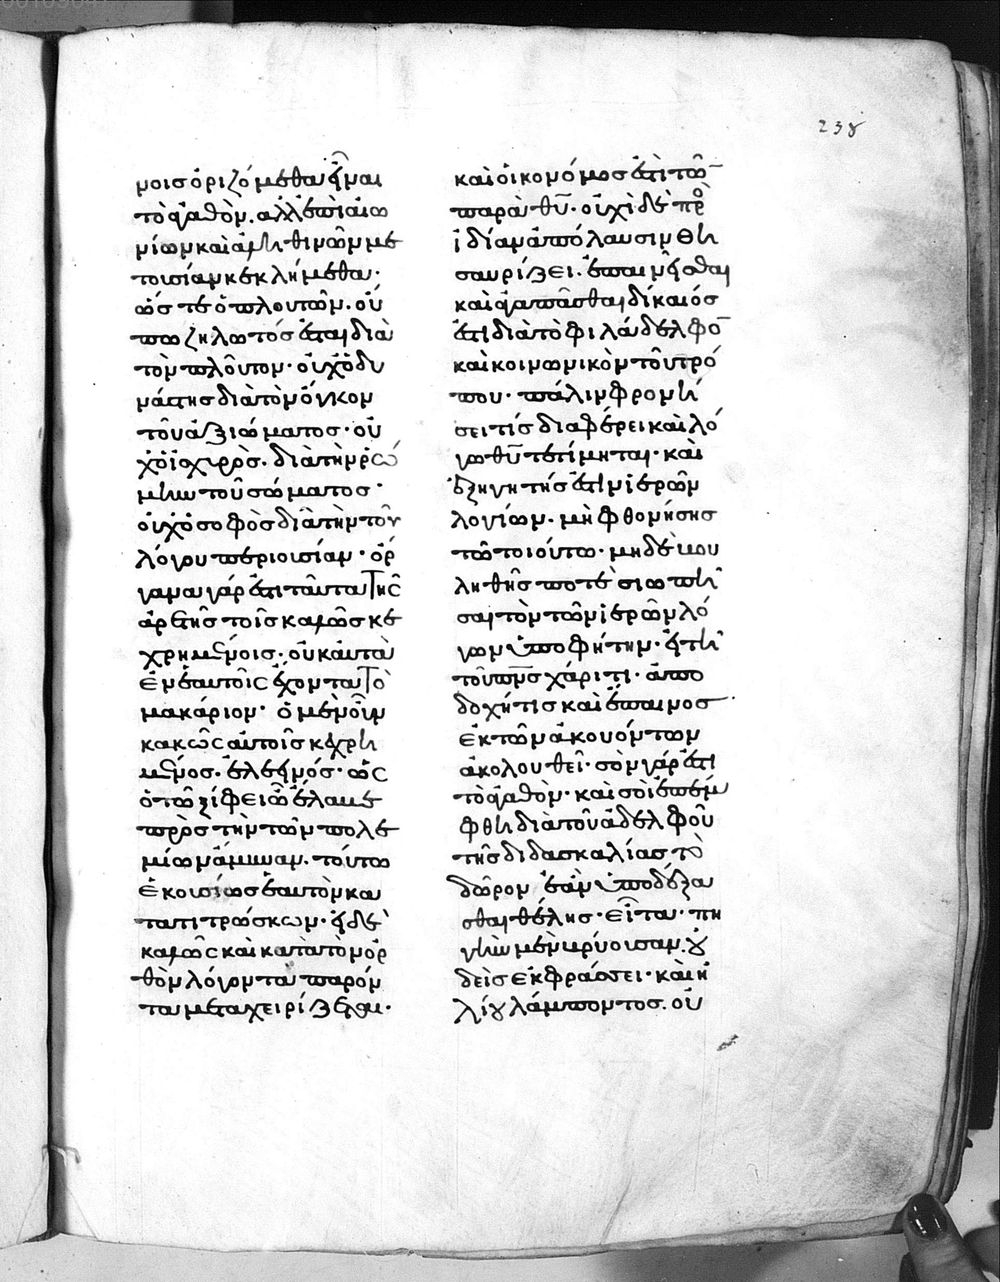 238
μοις ὁριζόμεθα εἶναι
τὸ ἀγαθὸν. ἀλλ' ἐπὶ αἰω
νίων καὶ ἀληθινῶν με
τουσίαν κεκλήμεθα.
ὥστε ὁ πλουτῶν. οὔ
πω ζηλωτός ἐστι διὰ
τὸν πλοῦτον. οὐχ ὁ δυ
νάστης διὰ τὸν ὄγκον
τοῦ ἀξιώματος. οὐ
χ ὁ ἰσχυρὸς. διὰ τὴν ῥώ
μην τοῦ σώματος.
οὐχ ὁ σοφὸς διὰ τὴν τοῦ
λόγου περιουσίαν. ὄρ
γανα γάρ ἐστι ταῦτα τῆς
ἀρετῆς τοῖς καλῶς κε
χρημένοις. οὐκ αὐτὰ
ἐν ἑαυτοῖς ἔχοντα τὸ
μακάριον. ὁ μὲν οὖν
κακῶς αὐτοῖς κεχρη
μένος. ἐλεεινός. ὡς
ὁ τῷ ξίφει ᾧ ἔλαβε
πρὸς τὴν τῶν πολε
μίων ἄμυναν. τούτω
ἑκουσίως ἑαυτὸν κα
τατιτρώσκων. εἰ δὲ
καλῶς καὶ κατὰ τὸν ὀρ
θὸν λόγον τὰ παρόν
τα μεταχειρίζεται.
καὶ οἰκονόμος ἐστὶ τῶν
παρὰ θυ. οὐχὶ δὲ πρὸς
ἰδίαν ἀπόλαυσιν θη
σαυρίζει. ἐπαινεῖσθαι
καὶ ἀγαπᾶσθαι δίκαιός
ἐστι διὰ τὸ φιλάδελφον
καὶ κοινωνικὸν τοῦ τρό
που. πάλιν φρονή
σει τίς διαφέρει καὶ λό
γω θυ τετίμηται. καὶ
ἐξηγητής ἐστιν ἱερῶν
λογίων. μὴ φθονήσης
τῶ τοιούτω. μηδὲ βου
ληθῆς ποτὲ σιωπῆ
σαι τὸν τῶν ἱερῶν λό
γων ὑποφήτην. ἐὰν
τοῦ πνς χάριτι. ἀπο
δοχή τις καὶ ἔπαινος
ἐκ τῶν ἀκουόντων
ἀκολουθεῖ. σὸν γάρ ἐστι
τὸ ἀγαθὸν. καὶ σοὶ ἐπέμ
φθη διὰ τοῦ ἀδελφοῦ
τῆς διδασκαλίας τὸ
δῶρον ἐὰν ὑποδέξα
σθαι θέλης. εἶτα. πη
γὴν μὲν βρύουσαν. οὐ
δεὶς ἐκφράσσει. καὶ ἡ
λίου λάμποντος. οὐ